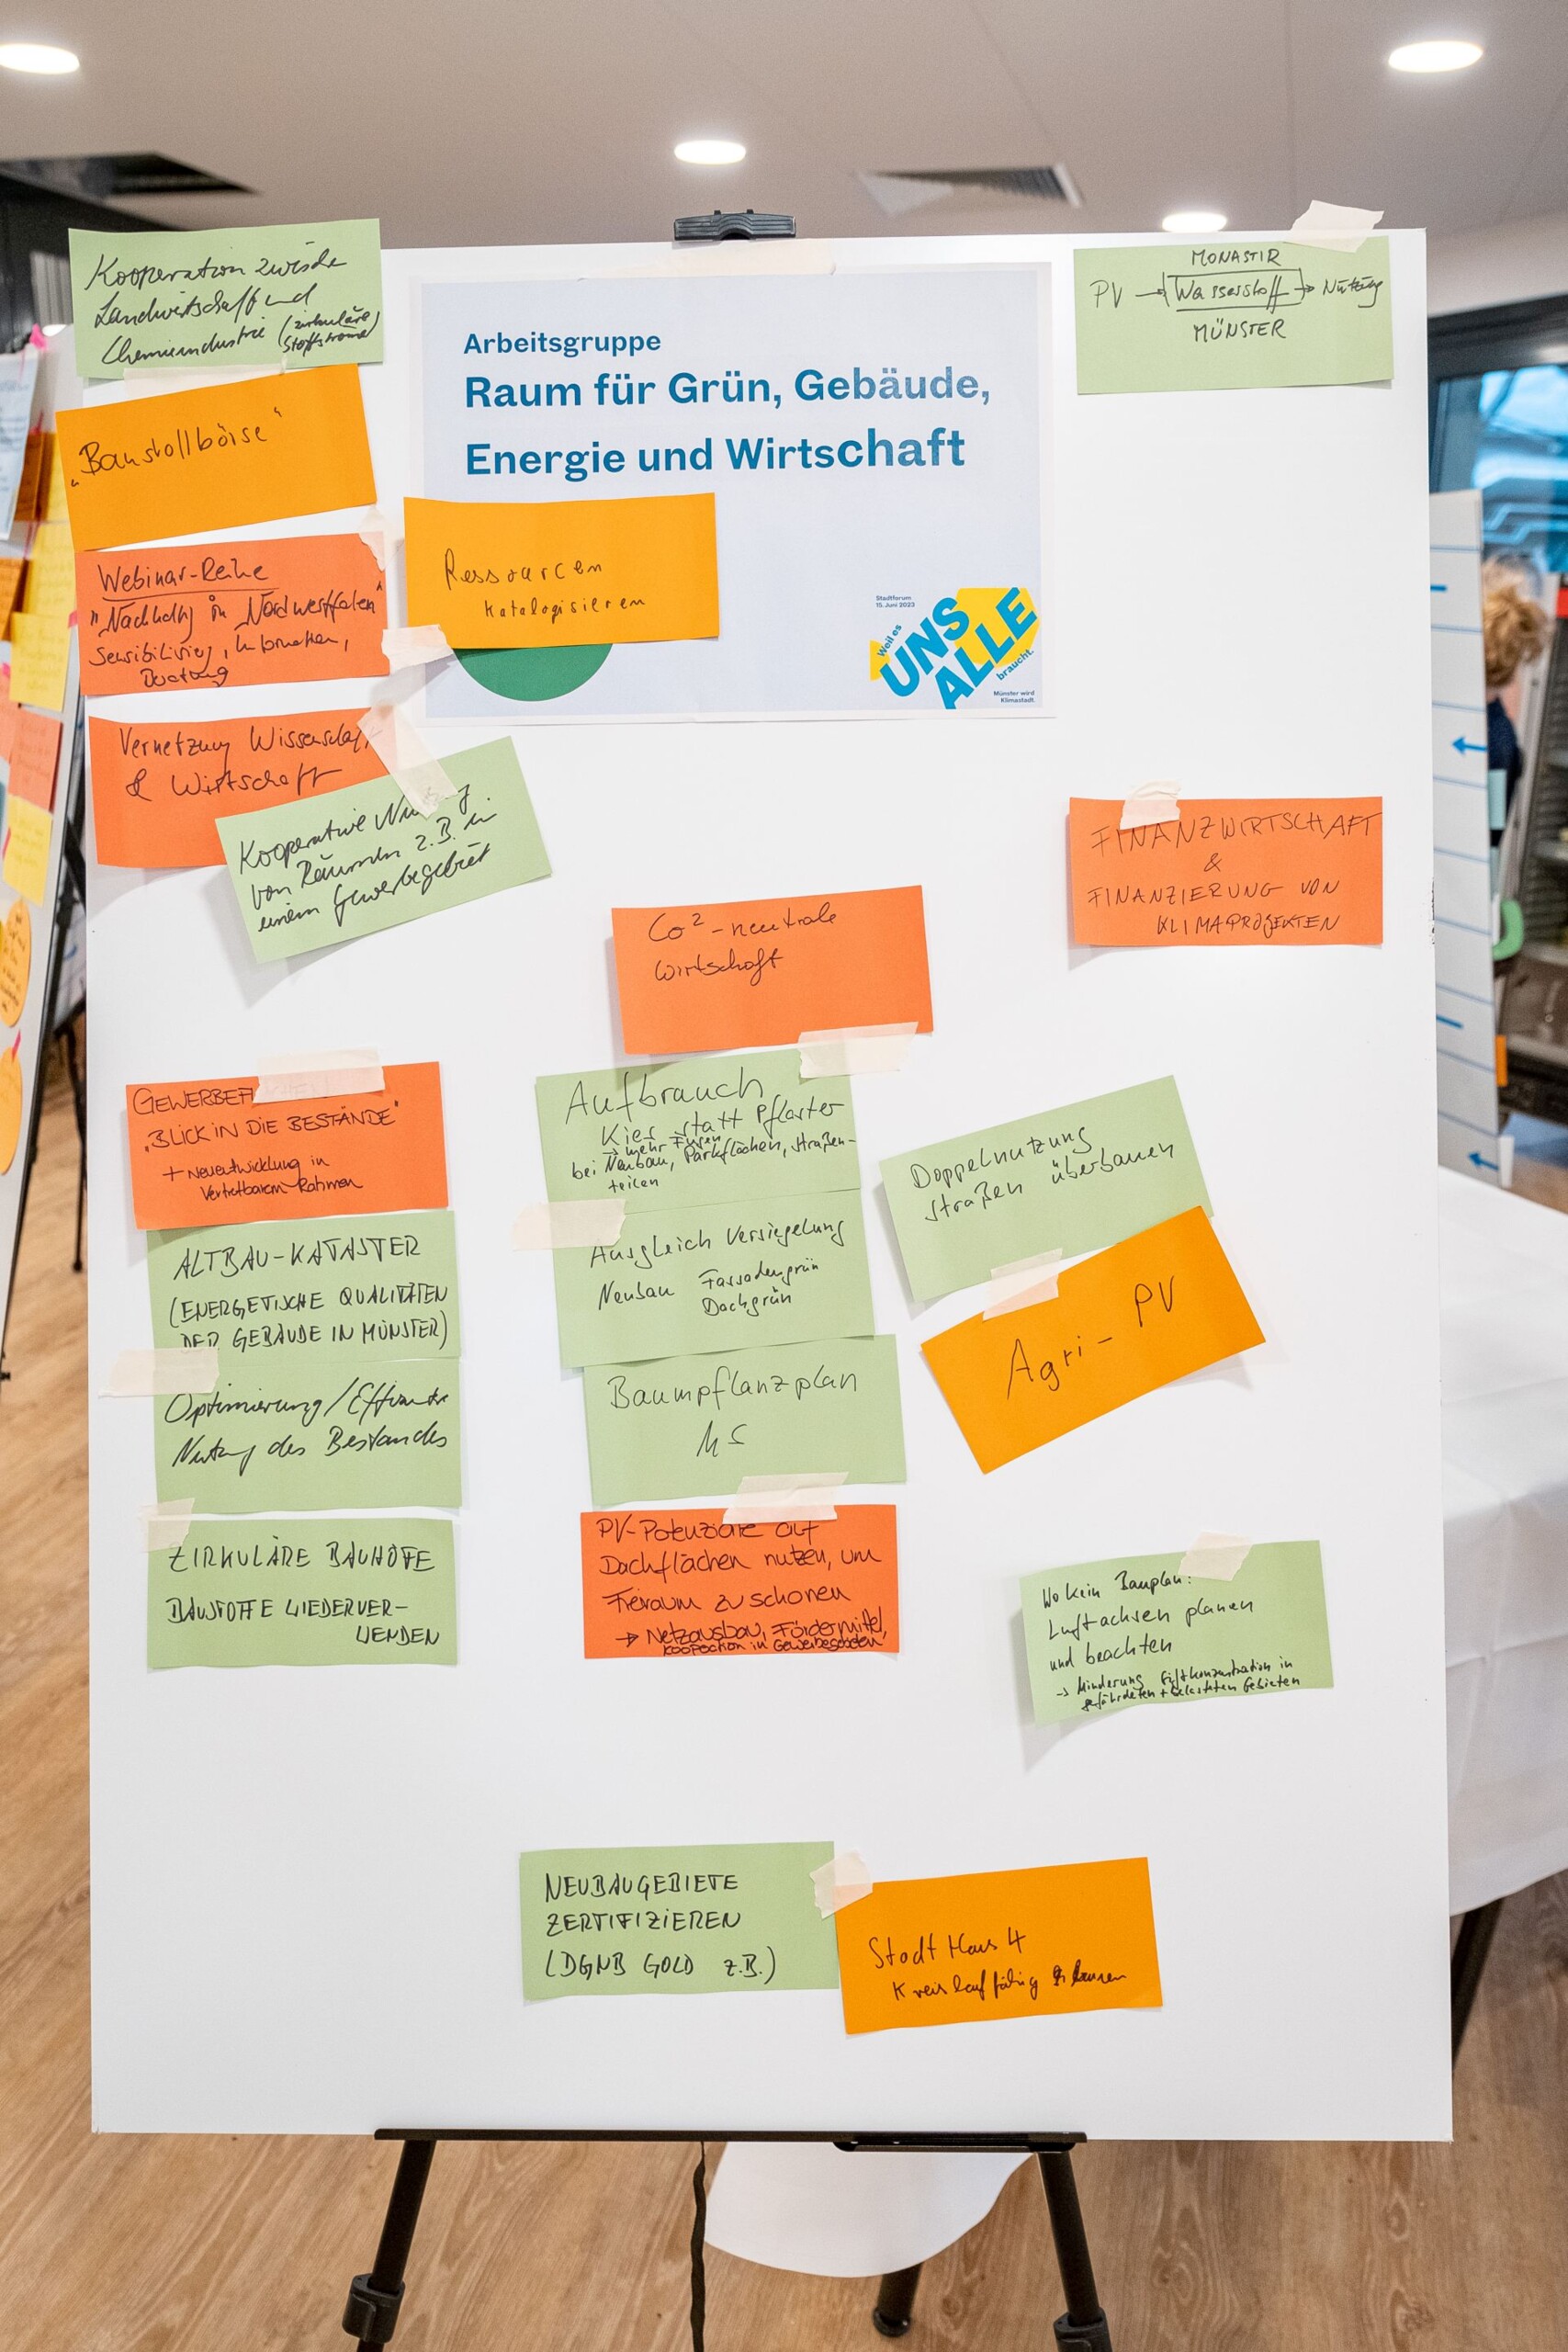 Kooperation zwische
Landwirtschaft und
Chemieindustrie (zirkuläre
Stoffströme)
"Baustollbörse"
Webinar-Reihe
"Nachhaltig in Nordwestfalen"
Sensibilisierg, Information,
Beratung
Vernetzung Wissenschaft
& Wirtschaft
Kooperative
von Räumen z.B. in
einem Gewerbegebiet
Arbeitsgruppe
Raum für Grün, Gebäude,
Energie und Wirtschaft
Ressourcen
katalogisieren
Stadtforum
15. Juni 2023
Weil es
UNS
ALLE
braucht.
Münster wird
Klimastadt.
MONASTIR
PV → Wasserstoff → Nutzug
MÜNSTER
FINANZWIRTSCHAFT
&
FINANZIERUNG VON
KLIMAPROJEKTEN
Co² - neutrale
Wirtschaft
"BLICK IN DIE BESTÄNDE"
+ Neuentwicklung in
Vertretbarem Rahmen
ALTBAU-KATASTER
(ENERGETISCHE QUALITÄTEN
DER GEBÄUDE IN MÜNSTER)
Optimierung/Effiziente
Nutzung des Bestandes
ZIRKULÄRE BAUHÖFE
BAUSTOFFE WIEDERVER-
WENDEN
Aufbrauch
Kies statt Pflaster
→ mehr Fugen
bei Neubau, Parkflächen, straßen-
teilen
Ausgleich Versiegelung
Neubau Fassadengrün
Dachgrün
Baumpflanzplan
MS
PV-Potenziale auf
Dachflächen nutzen, um
Freiraum zu schonen
→ Netzausbau, Fördermittel,
Kooperation in Gewerbegebieten
Doppelnutzung
straßen überbauen
Agri - PV
Wo kein Bauplan:
Luftachsen planen
und beachten
→ Minderung Giftkonzentration in
gefährdeten + belasteten Gebieten
NEUBAUGEBIETE
ZERTIFIZIEREN
(DGNB GOLD z.B.)
Stadt Haus 4
Kreislauffähig